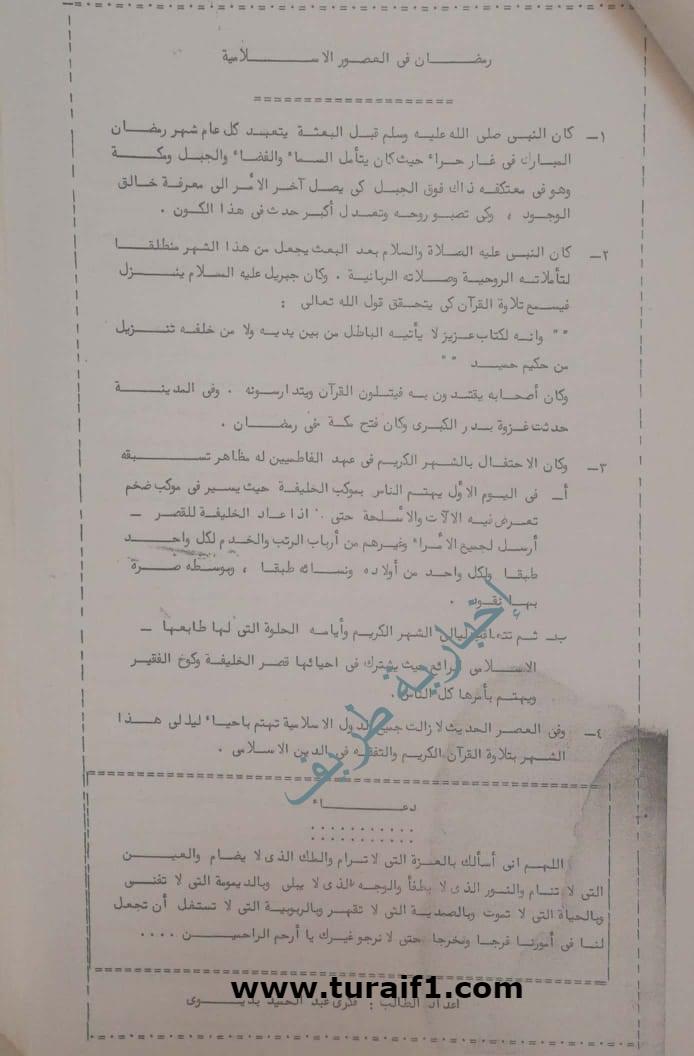 رمضــان فى العصور الاســـلامية
١ـ كان النبى صلى الله عليه وسلم قبل البعثة يتعبد كل عام شهر رمضان
المبارك فى غار حراء حيث كان يتأمل السماء والفضاء والجبل ومكــة
وهو فى معتكفه ذاك فوق الجبل كى يصل آخر الأمر الى معرفة خالق
الوجود ، وكى تصبو روحه وتعدل أكبر حدث فى هذا الكون .
٢ـ كان النبى عليه الصلاة والسلام بعد البعث يجعل من هذا الشهر منطلقــا
لتأملاته الروحية وصلاته الربانية . وكان جبريل عليه السلام ينــزل
فيسمع تلاوة القرآن كى يتحقق قول الله تعالى :
" " وانه لكتاب عزيز لا يأتيه الباطل من بين يديه ولا من خلفه تنــزيل
من حكيم حميــد " "
وكان أصحابه يقتدون به فيتلون القرآن ويتدارسونه . وفى المدينــة
حدثت غزوة بدر الكبرى وكان فتح مكــة فى رمضان .
٣ـ وكان الاحتفال بالشهر الكريم فى عهد الفاطميين له مظاهر تســبقه
أـ فى اليوم الأول يهتم الناس بموكب الخليفة حيث يسير فى موكب ضخم
تعرض فيه الآلات والأسلحة حتى . اذا عاد الخليفة للقصر ـ
أرسل لجميع الأمراء وغيرهم من أرباب الرتب والخدم لكل واحــد
طبقا ولكل واحد من أولاده ونسائه طبقا ، وبوسطه صرة
بها نقود .
بـ ثم تتعاقب ليالى الشهر الكريم وأيامه الحلوة التى لها طابعها ـ
الاسلامى الرائع حيث يشترك فى احيائها قصر الخليفة وكوخ الفقير
ويهتم بأمرها كل الناس.
٤ـ وفى العصر الحديث لا زالت جميع الدول الاسلامية تهتم باحياء ليالى هــذا
الشهر بتلاوة القرآن الكريم والتفقه فى الدين الاسلامى .
دعــــاء
اللهم انى أسألك بالعزة التى لا ترام والملك الذى لا يضام والعيــن
التى لا تنــام والنور الذى لا يطفأ والوجه الذى لا يبلى وبالديمومة التى لا تفنى
وبالحياة التى لا تموت وبالصمدية التى لا تقهر وبالربوبية التى لا تستغل أن تجعل
لنا فى أمورنا فرجا ومخرجا حتى لا نرجو غيرك يا أرحم الراحميــن ....
اعداد الطالب : عبد الحميد
إخبارية طريف
www.turaif1.com